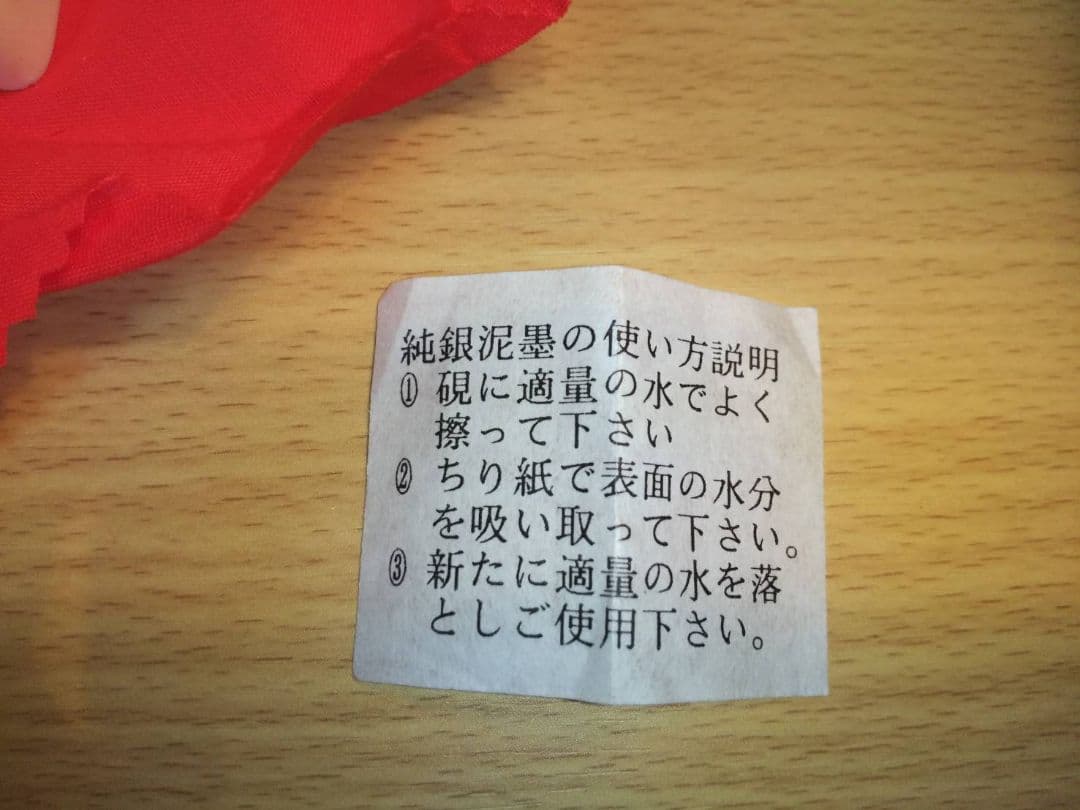 純銀泥墨の使い方説明
① 硯に適量の水でよく
擦って下さい
② ちり紙で表面の水分
を吸い取って下さい。
③ 新たに適量の水を落
としご使用下さい。